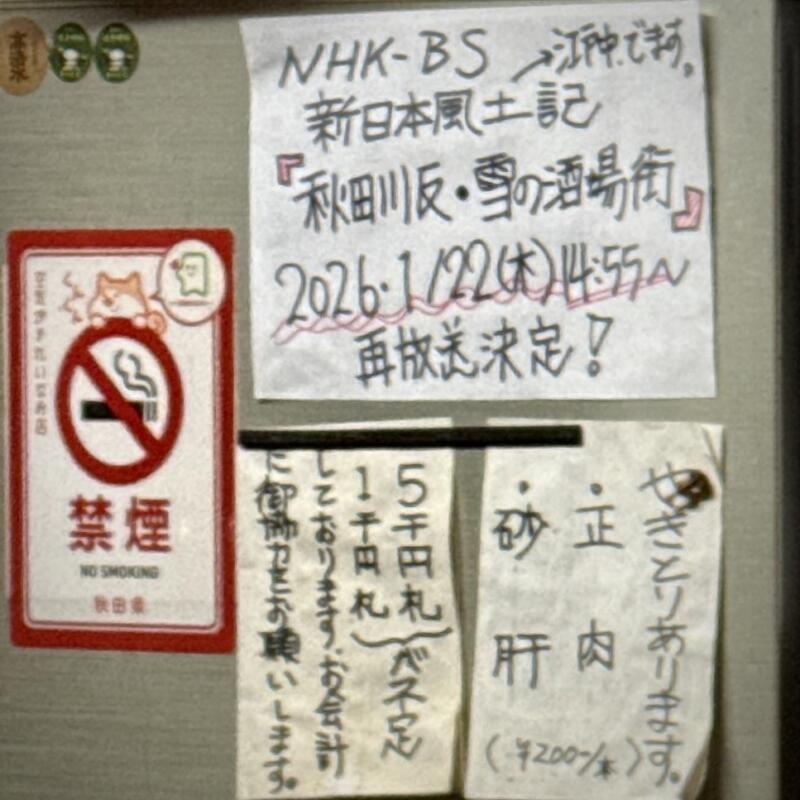 NHK-BS →江仲でます。
新日本風土記
『秋田川反・雪の酒場街』
2026.1/22(木)14:55〜
再放送決定!
空気がきれいなお店
禁煙
NO SMOKING
秋田県
5千円札
1千円札
が不足
しております。お会計
に御協力をお願いします。
やきとりあります。
・正肉
・砂肝
(¥200-/本)